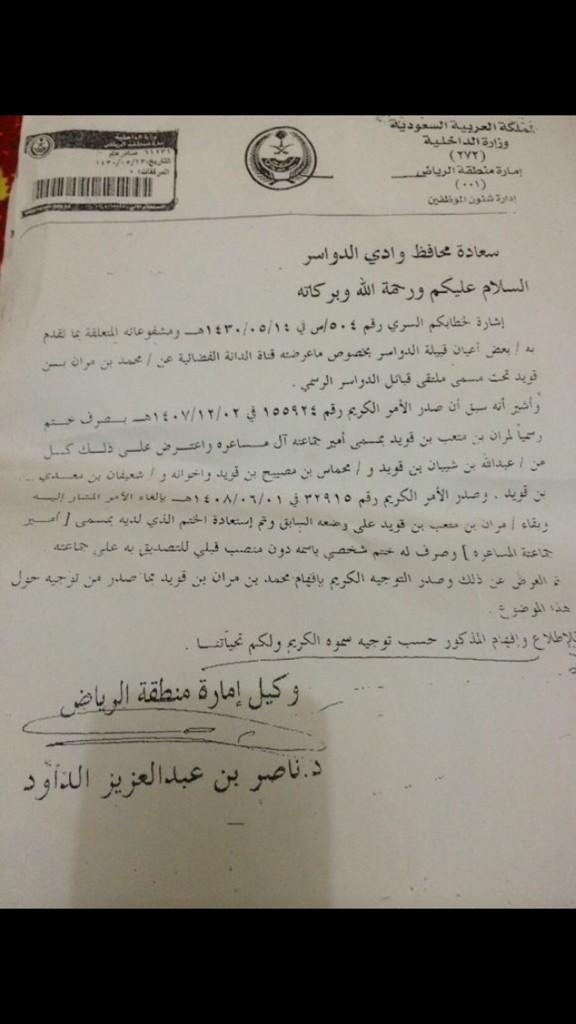 المملكة العربية السعودية
وزارة الداخلية
(٢٧٢)
إمارة منطقة الرياض
(٠٠١)
إدارة شئون الموظفين
صادر عام
التاريخ: ١٤٣٠/٠٥/٢٣
المرفقات: ٠
سعادة محافظ وادي الدواسر
السلام عليكم ورحمة الله وبركاته
إشارة لخطابكم السري رقم ٥٠٤/س في ١٤٣٠/٠٥/١٤هـ ومشفوعاته المتعلقة بما تقدم
به / بعض أعيان قبيلة الدواسر بخصوص ماعرضته قناة الدانة الفضائية عن / محمد بن مران بن
قويد تحت مسمى ملتقى قبائل الدواسر الرسمي .
وأشير أنه سبق أن صدر الأمر الكريم رقم ١٥٥٩٢٤ في ١٤٠٧/١٢/٠٢هـ بصرف ختم
رسمياً لمران بن متعب بن قويد بمسمى أمير جماعته آل مساعره واعترض على ذلك كل
من / عبدالله بن شبيان بن قويد و / محماس بن مصيبح بن قويد واخوانه و / شعيفان بن معدي
بن قويد . وصدر الأمر الكريم رقم ٣٢٩١٥ في ١٤٠٨/٠٦/٠١هـ بإلغاء الأمر المشار إليه
وبقاء / مران بن متعب بن قويد على وضعه السابق وتم إستعادة الختم الذي لديه بمسمى [ أمير
جماعتة المساعره ] وصرف له ختم شخصي باسمه دون منصب قبلي للتصديق به على جماعته .
تم العرض عن ذلك وصدر التوجيه الكريم بإفهام محمد بن مران بن قويد بما صدر من توجيه حول
هذا الموضوع .
للإطلاع وإفهام المذكور حسب توجيه سموه الكريم ولكم تحياتنا .
وكيل إمارة منطقة الرياض
د.ناصر بن عبدالعزيز الداود